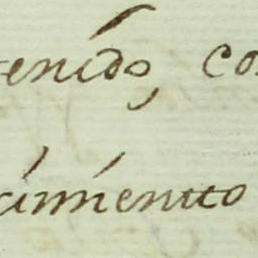 enido, co
cimiento